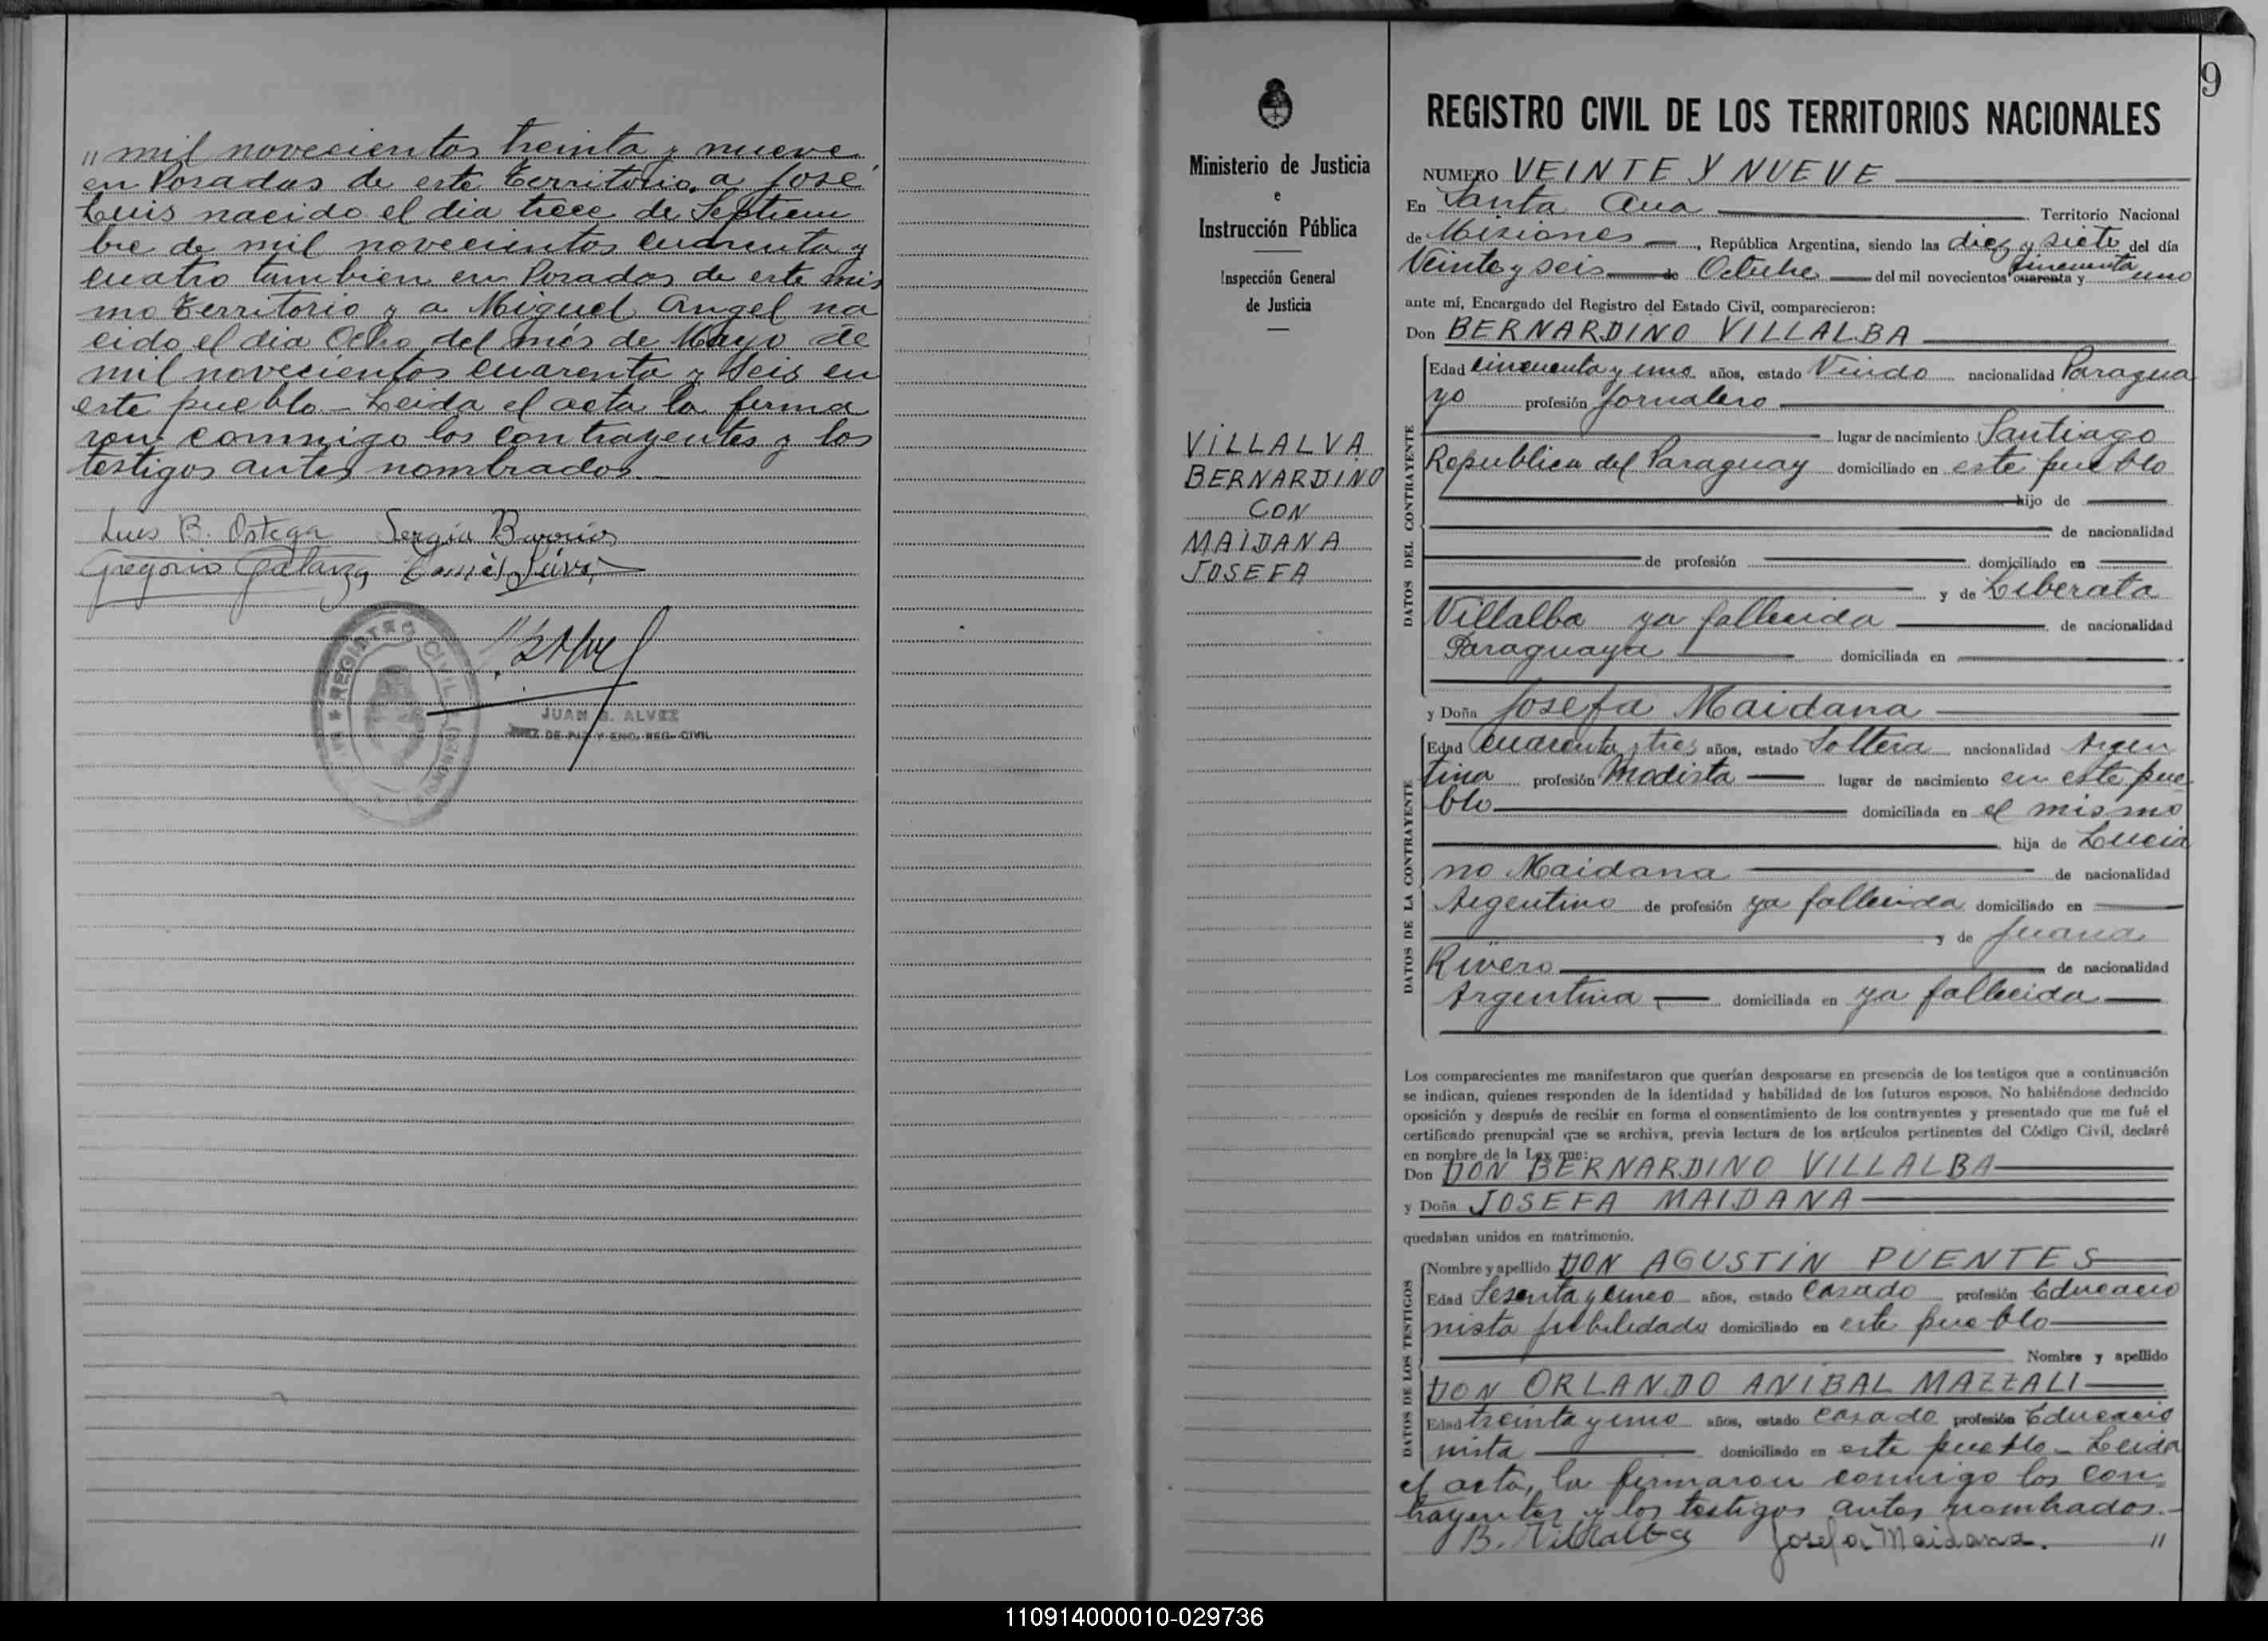 " mil novecientos treinta y nueve
en Posadas de este Territorio, a José
Luis nacido el dia trece de Septiem
bre de mil novecientos cuarenta y
cuatro tambien en Posadas de este mis
mo Territorio y a Miguel Angel na
cido el dia Ocho del mes de Mayo de
mil novecientos cuarenta y Seis en
este pueblo.- Leida el acta la firma
ron conmigo los contrayentes y los
testigos antes nombrados.-
Luis B. Ortega Sergia Barrios
Gregorio
REGISTRO CIVIL
JUAN B. ALVEZ
JUEZ DE PAZ Y ENC. REG. CIVIL
Ministerio de Justicia
e
Instrucción Pública
Inspección General
de Justicia
VILLALVA
BERNARDINO
CON
MAIDANA
JOSEFA
9
REGISTRO CIVIL DE LOS TERRITORIOS NACIONALES
NUMERO VEINTE Y NUEVE
En Santa Ana Territorio Nacional
de Misiones, República Argentina, siendo las diez y siete del día
Veinte y seis de Octubre del mil novecientos cuarenta y cincuenta uno
ante mí, Encargado del Registro del Estado Civil, comparecieron:
Don BERNARDINO VILLALBA
DATOS DEL CONTRAYENTE
Edad cincuenta y uno años, estado Viudo nacionalidad Paragua
yo profesión Jornalero
lugar de nacimiento Santiago
Republica del Paraguay domiciliado en este pueblo
hijo de
de nacionalidad
de profesión domiciliado en
y de Liberata
Villalba ya fallecida de nacionalidad
Paraguaya domiciliada en
y Doña Josefa Maidana
DATOS DE LA CONTRAYENTE
Edad cuarenta y tres años, estado Soltera nacionalidad Argen
tina profesión Modista lugar de nacimiento en este pue
blo domiciliada en el mismo
hija de Lucia
no Maidana de nacionalidad
Argentino de profesión ya fallecida domiciliado en
y de Juana
Rivero de nacionalidad
Argentina domiciliada en ya fallecida
Los comparecientes me manifestaron que querían desposarse en presencia de los testigos que a continuación
se indican, quienes responden de la identidad y habilidad de los futuros esposos. No habiéndose deducido
oposición y después de recibir en forma el consentimiento de los contrayentes y presentado que me fué el
certificado prenupcial que se archiva, previa lectura de los artículos pertinentes del Código Civil, declaré
en nombre de la Ley que:
Don DON BERNARDINO VILLALBA
y Doña JOSEFA MAIDANA
quedaban unidos en matrimonio.
DATOS DE LOS TESTIGOS
Nombre y apellido DON AGUSTIN PUENTES
Edad Sesenta y cinco años, estado Casado profesión Educacio
nista jubiledado domiciliado en este pueblo
Nombre y apellido
DON ORLANDO ANIBAL MAZZALI
Edad treinta y uno años, estado casado profesión Educacio
nista domiciliado en este pueblo - Leida
el acta, la firmaron conmigo los con
trayentes y los testigos antes nombrados.-
B. Villalba Josefa Maidana. "
110914000010-029736